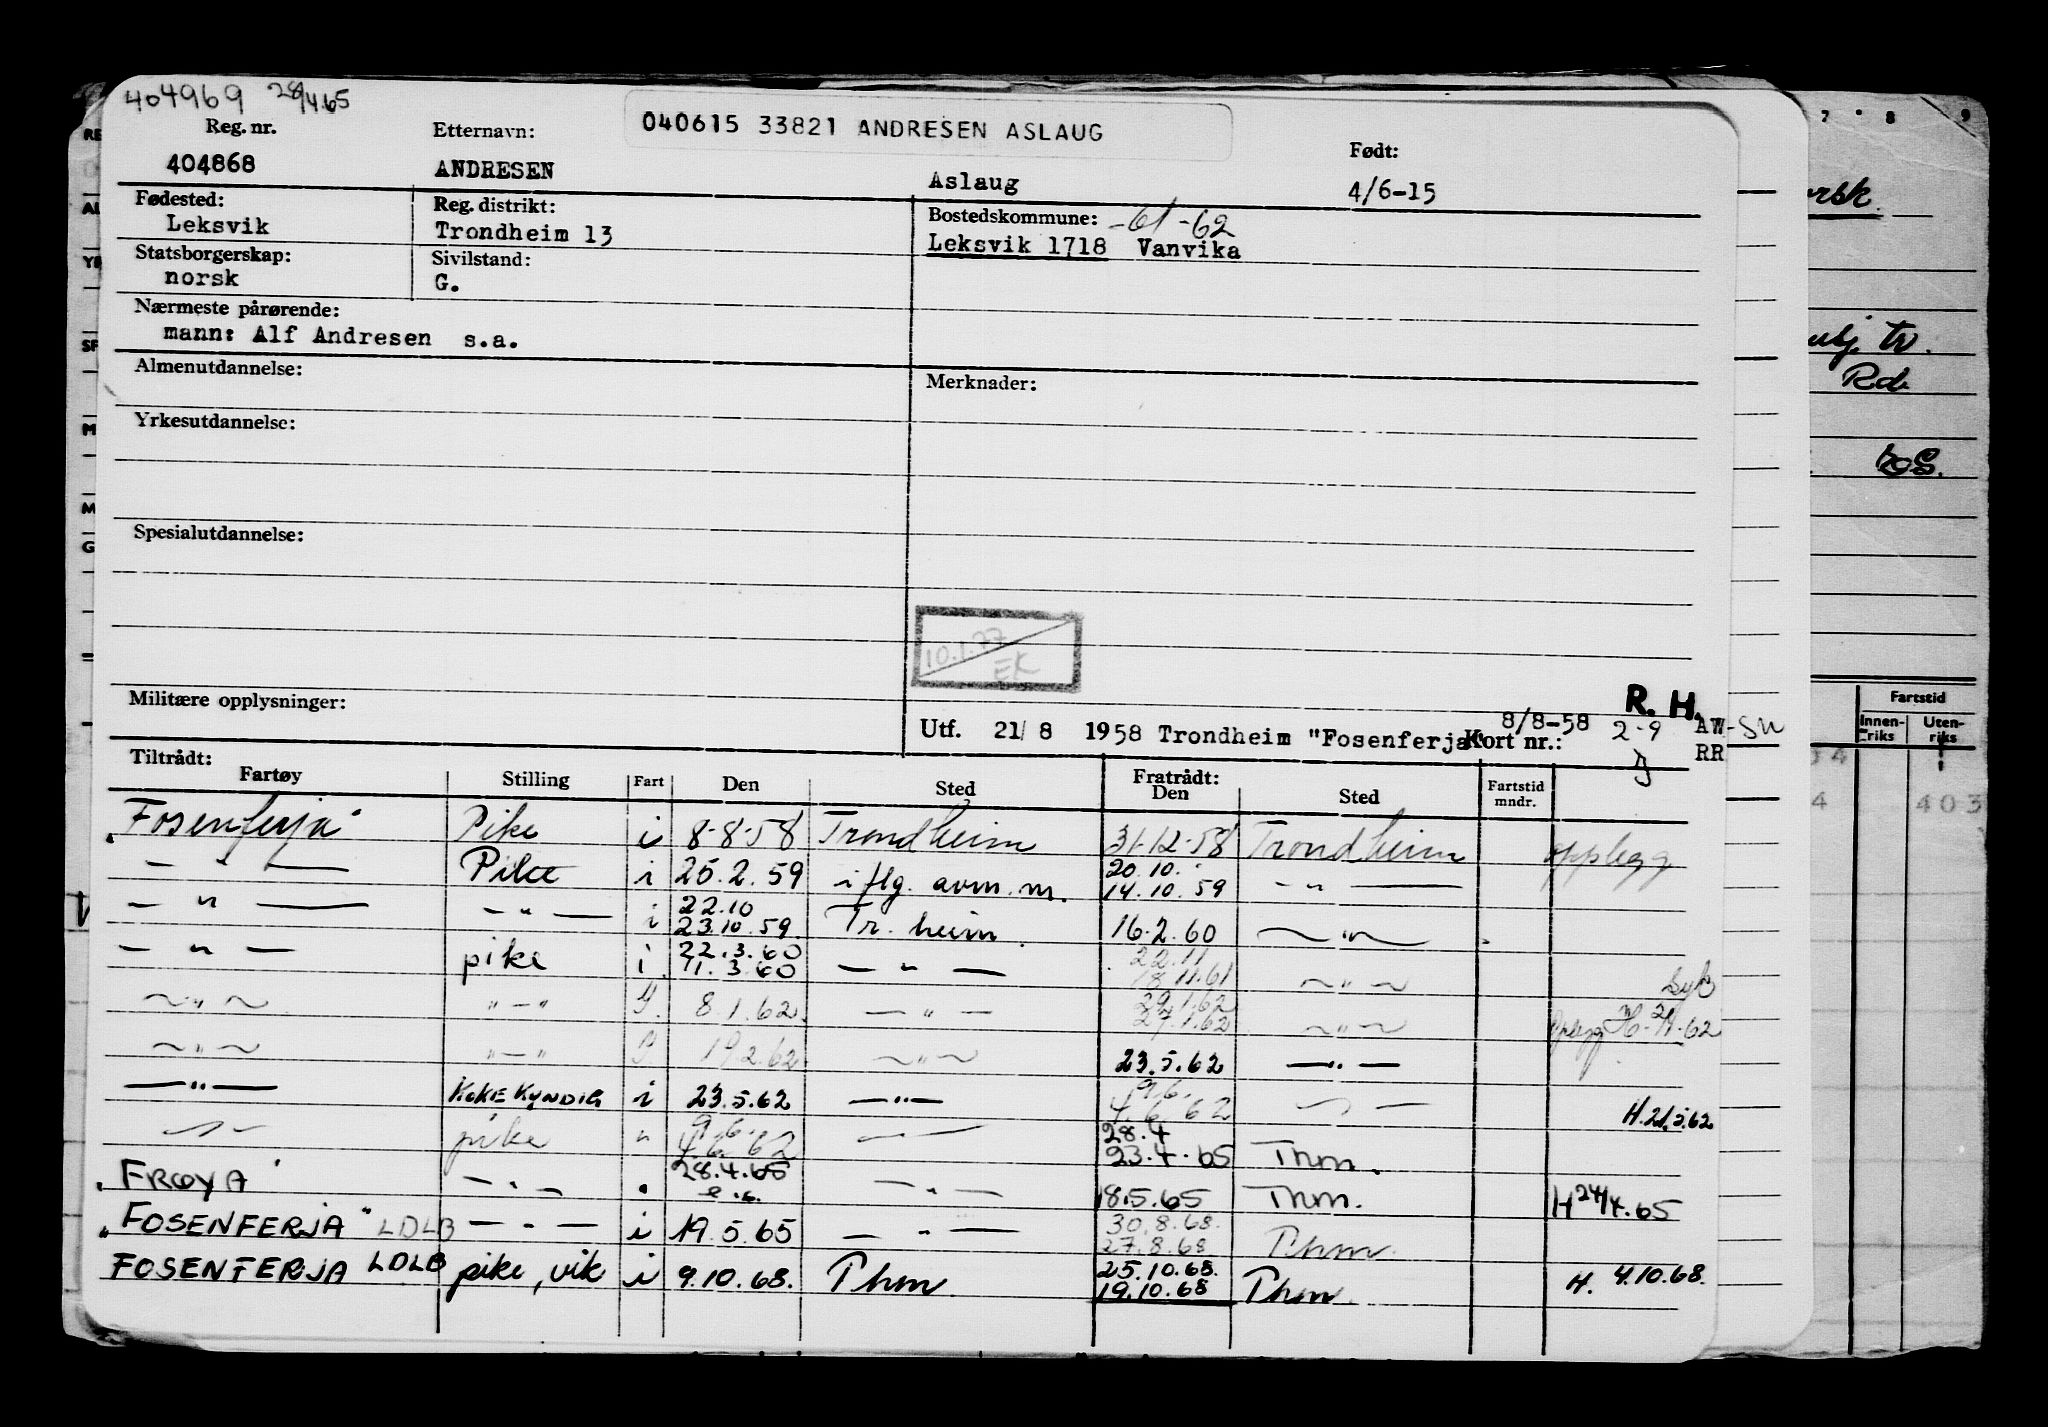 404969 28/4.65
040615 33821 ANDRESEN ASLAUG
Reg. nr. Etternavn: Født:
404868 ANDRESEN Aslaug 4/6-15
Fødested: Reg. distrikt: Bostedskommune: -61-62
Leksvik Trondheim 13 Leksvik 1718 Vanvika
Statsborgerskap: Sivilstand:
norsk G.
Nærmeste pårørende:
mann: Alf Andresen s.a.
Almenutdannelse: Merknader:
Yrkesutdannelse:
Spesialutdannelse:
10.1.77
EK
Militære opplysninger: R. H.
Utf. 21/8 1958 Trondheim "Fosenferja" 8/8-58 Kort nr.: 2-9 AW-SW
RR
Tiltrådt: Fratrådt:
Fartøy Stilling Fart Den Sted Den Sted Fartstid mndr.
"Fosenferja" Pike i 8-8-58 Trondheim 31-12-58 Trondheim opplegg
— " — Pike i 25.2.59 i flg. avm. m. 20.10. 14.10.59 — " —
— " — — " — i 22.10 23.10.59. Tr.heim. 16.2.60 — " —
— " — pike i 22.3.60 11.3.60 — " — 22.11 18.11.61 — " — syk
— " — " — " 8.1.62. — " — 29.1.62 27.1.62 — " — H. 62
— " — " — " 19.2.62 — " — 23.5.62 — " —
— " — KOKEKYNDIG i 23.5.62 — " — 9.6. 4.6.62 — H.21.5.62
— " — pike " 9.6. 4.6.62 — 28.4 23.4.65 Thm.
"FRØYA" — " — " 28.4.65 — " — 18.5.65 Thm. H 24/4.65
"FOSENFERJA" LDLB — " — i 19.5.65 — " — 30.8.68. 27.8.68 Thm.
FOSENFERJA LDLB pike, vik i 9.10.68. Thm 25.10.68. 19.10.68 Thm. H. 4.10.68.
7 8 9
orsk.
tv.
Rd.
Fartstid
Innen-riks Uten-riks
4 403